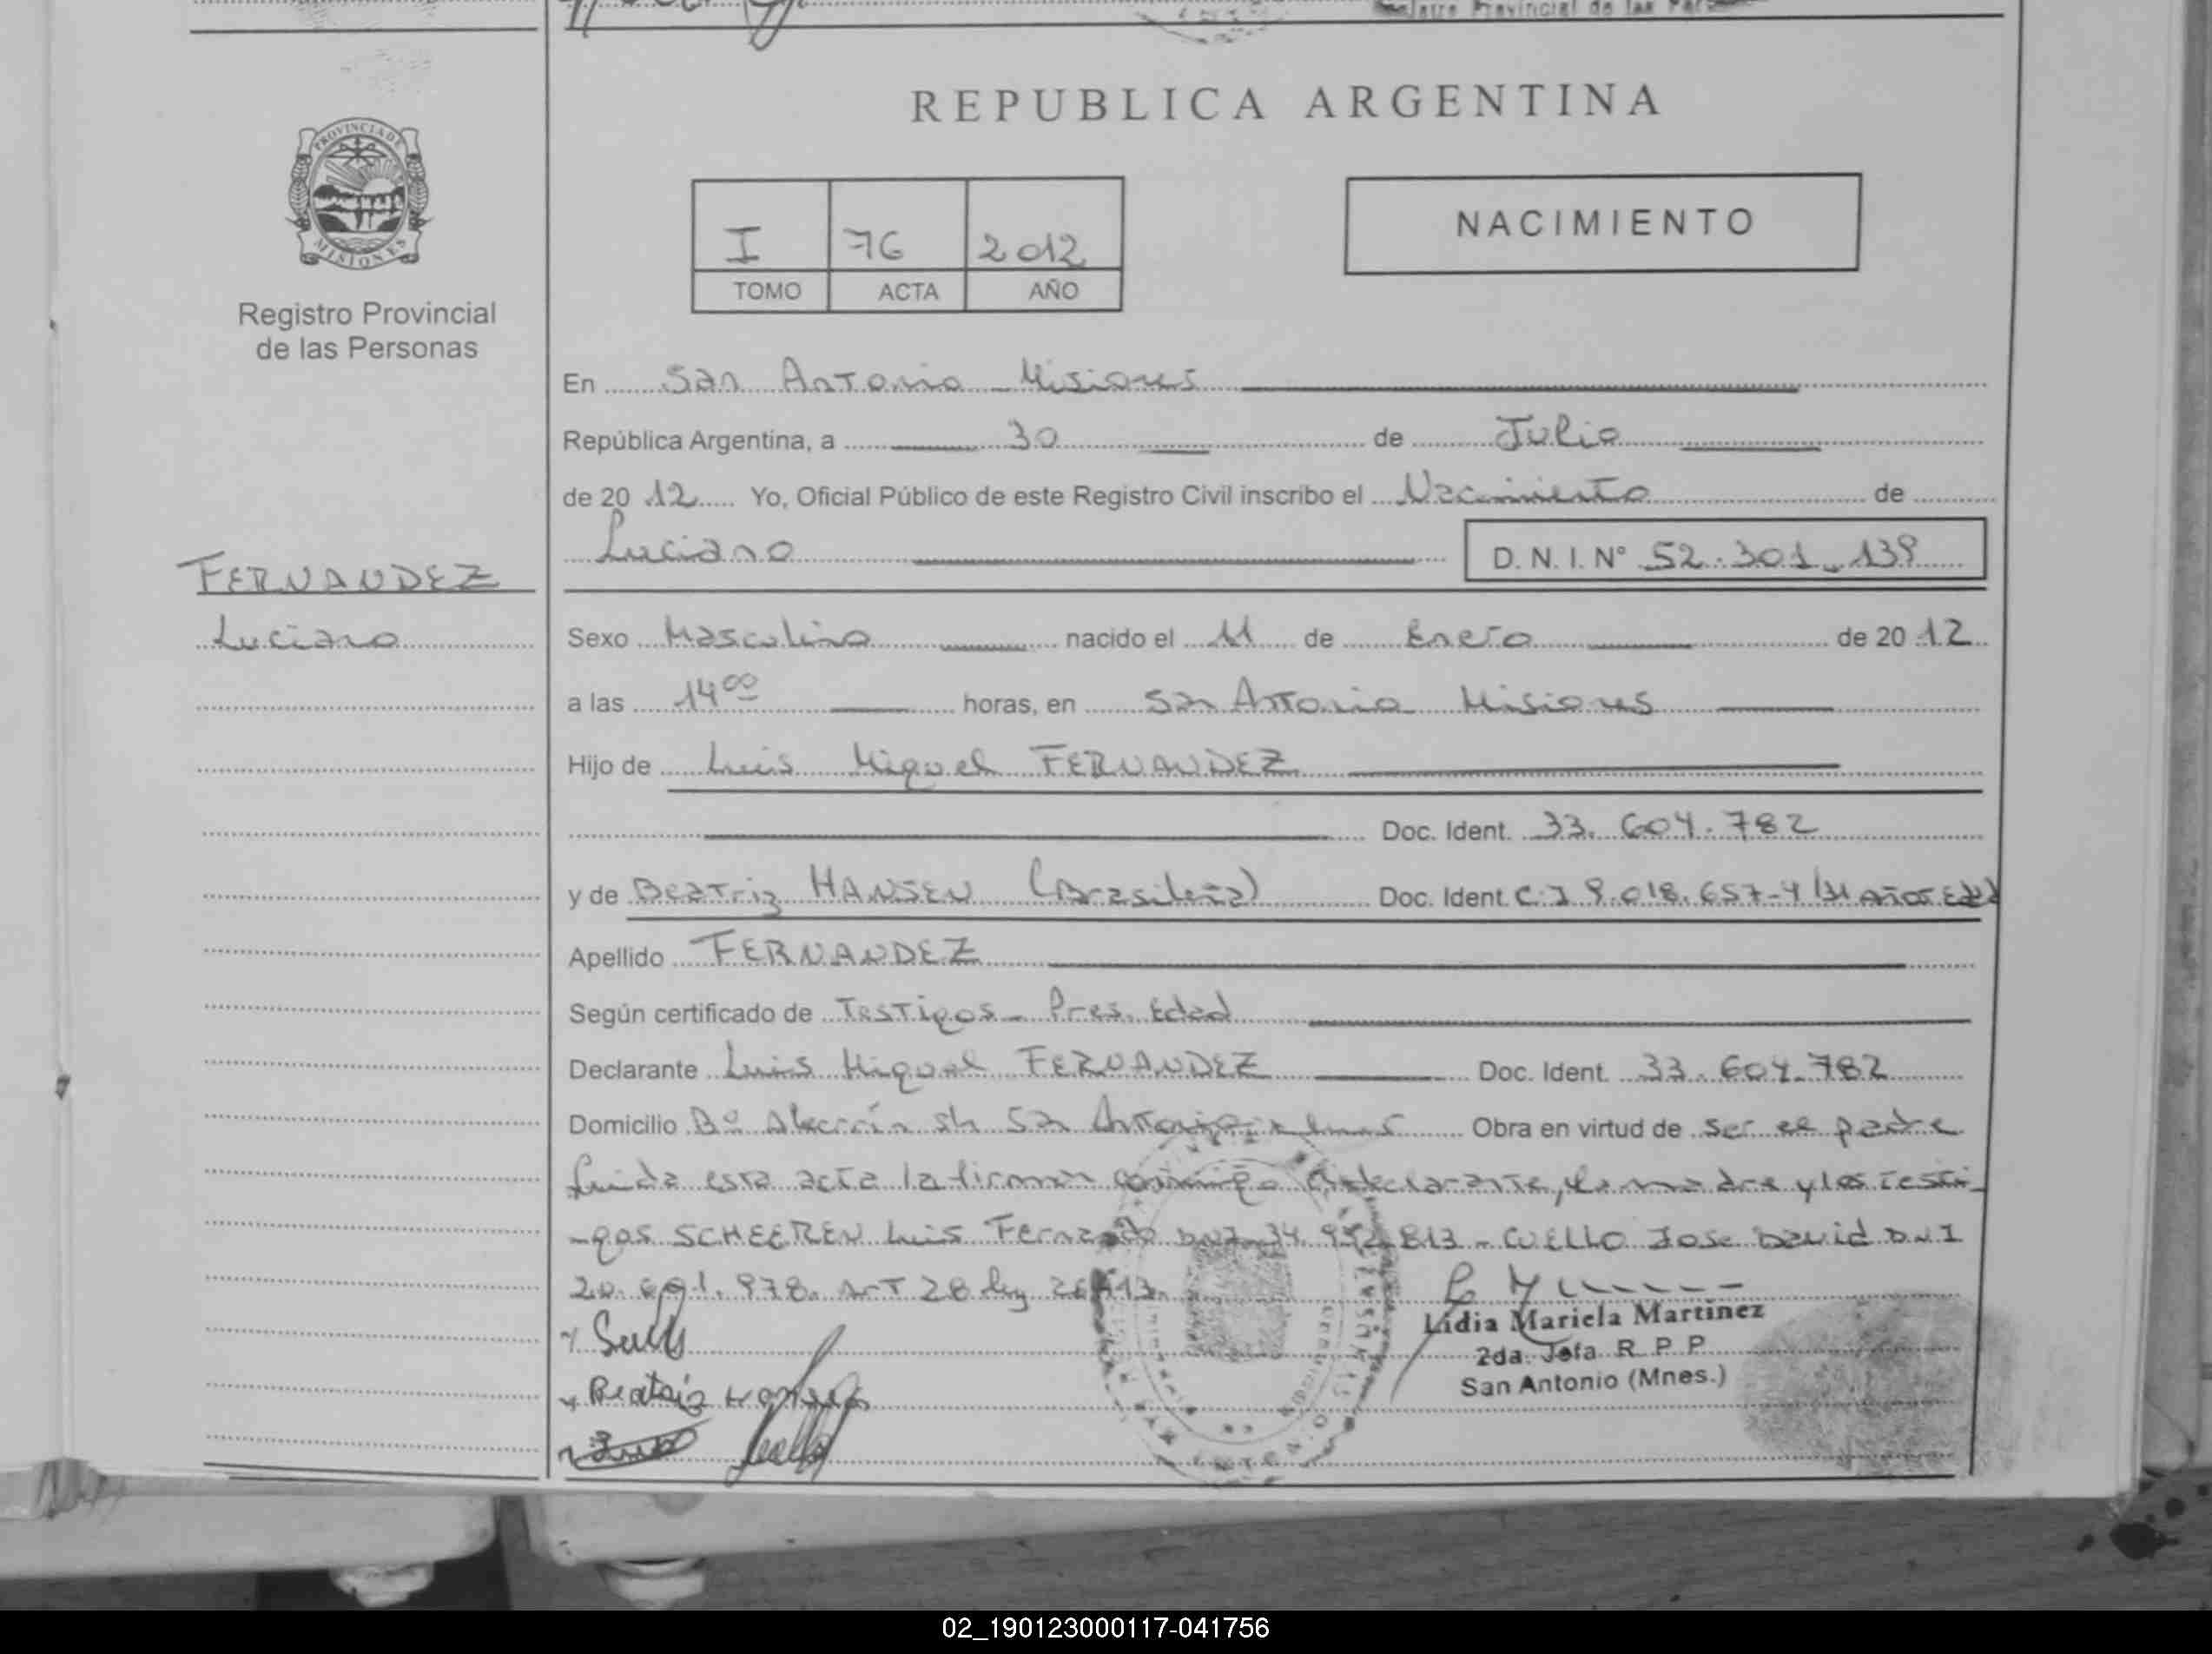 REPUBLICA ARGENTINA
PROVINCIA DE
MISIONES
Registro Provincial
de las Personas
I 76 2012
TOMO ACTA AÑO
NACIMIENTO
En San Antonio Misiones
República Argentina, a 30 de Julio
de 20 12 Yo, Oficial Público de este Registro Civil inscribo el Nacimiento de
Luciano D. N. I. N° 52.301.139
FERNANDEZ
Luciano
Sexo Masculino nacido el 11 de Enero de 20 12
a las 14 00 horas, en San Antonio Misiones
Hijo de Luis Miguel FERNANDEZ
Doc. Ident. 33.604.782
y de Beatriz HANSEN (Brasileña) Doc. Ident. C.I 9.018.657-4 /31 Años Edad
Apellido FERNANDEZ
Según certificado de Testigos - Pres. Edad
Declarante Luis Miguel FERNANDEZ Doc. Ident. 33.604.782
Domicilio Bº Alecrín s/n San Antonio Obra en virtud de ser el padre
Leida esta acta la firman conmigo el declarante, la madre y los testi-
-gos SCHEEREN Luis Fernando DNI 34.952.813 - CUELLO Jose David DNI
20. 978. Art 28 ley 26413.
Lidia Mariela Martinez
2da. Jefa R. P. P.
San Antonio (Mnes.)
Beatriz
02_190123000117-041756